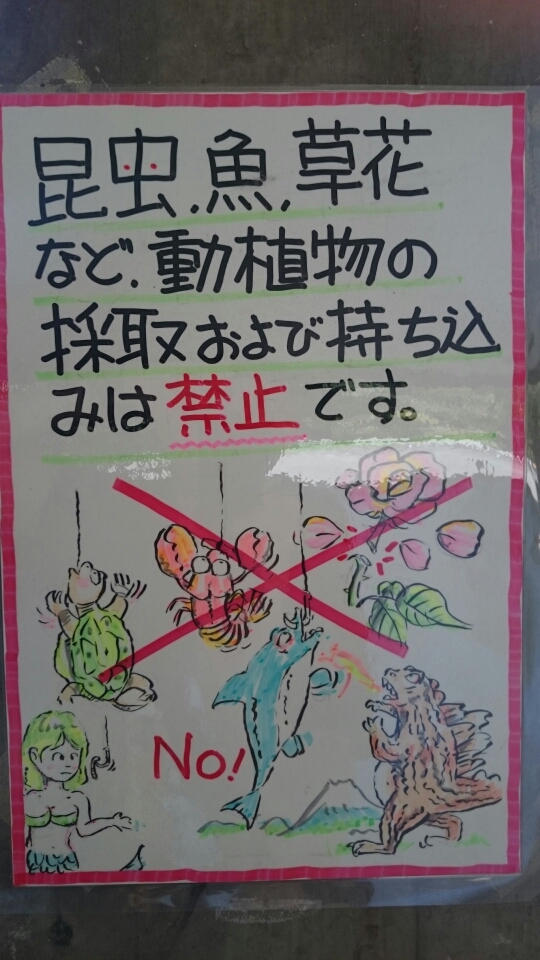 昆虫.魚.草花
など.動植物の
採取および持ち込
みは禁止です。
No!